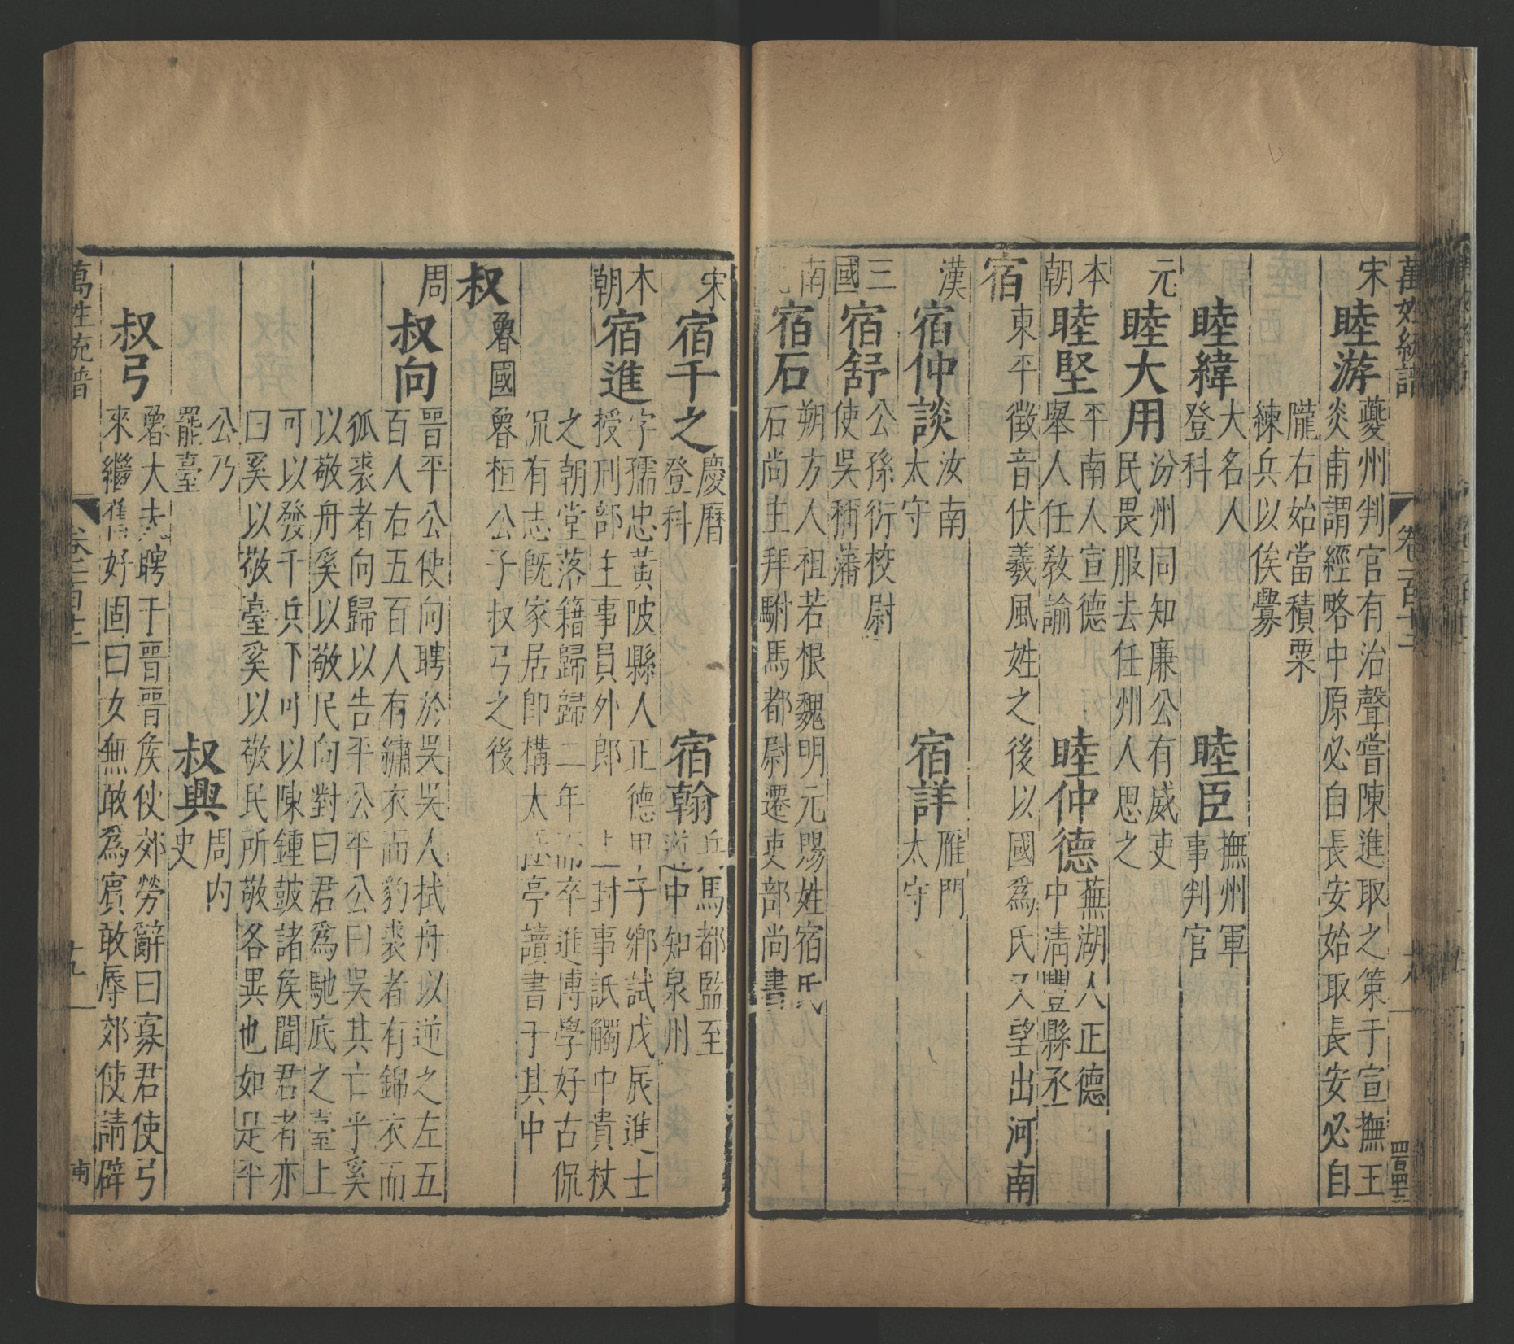 萬姓統譜
卷一百十二
宋
睦游
夔州判官有治聲嘗陳進取之策于宣撫王
炎甫謂經略中原必自長安始取長安必自
隴右始當積粟
練兵以俟釁
睦緯
大名人
登科
睦臣
撫州軍
事判官
元
睦大用
汾州同知廉公有威吏
民畏服去任州人思之
本朝
睦堅
平南人宣德
舉人任教諭
睦仲德
蕪湖人正德
中清豐縣丞
宿
東平徵音伏羲風姓之後以國爲氏又望出河南
漢
宿仲談
汝南
太守
宿詳
雁門
太守
三國
宿舒
公孫衍校尉
使吳稱藩
南
宿石
朔方人祖若根魏明元賜姓宿氏
石尚主拜駙馬都尉遷吏部尚書
宋
宿千之
慶曆
登科
宿翰
兵馬都監至
道中知泉州
本朝
宿進
字孺忠黃陂縣人正德甲子鄉試戊辰進士
授刑部主事員外郎 上封事詆觸中貴杖
之朝堂落籍歸歸二年而卒進博學好古侃
侃有志既家居卽構大歷亭讀書于其中
叔
魯國魯桓公子叔弓之後
周
叔向
晉平公使向聘於吳吳人拭舟以逆之左五
百人右五百人有繡衣而豹裘者有錦衣而
狐裘者向歸以告平公平公曰吳其亡乎奚
以敬舟奚以敬民向對曰君爲馳底之臺上
可以發千兵下可以陳鍾鼓諸矦聞君者亦
曰奚以敬臺奚以敬民所敬各異也如是平
公乃
罷臺
叔興
周内
史
叔弓
魯大夫聘于晉晉矦使郊勞辭曰寡君使弓
來繼舊好固曰女無敢爲賓敢辱郊使請辟
萬姓統譜
十九
南